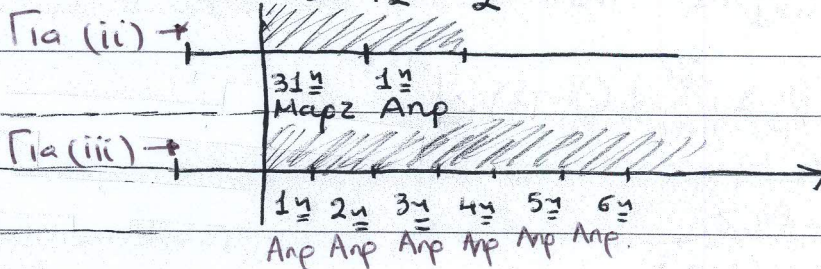 Για (ii) →
31η 1η
Μαρτ Απρ
Για (iii) →
1η 2η 3η 4η 5η 6η
Απρ Απρ Απρ Απρ Απρ Απρ.